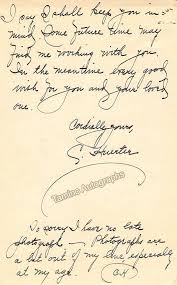 I say I shall keep you in
mind. Some future time may
find me working with you.
In the meantime every good
wish for you and your loved
one.
Cordially yours,
Huerter
Tamino Autographs
So sorry I have no late
photograph — Photographs are
a bit out of my line especially
at my age.